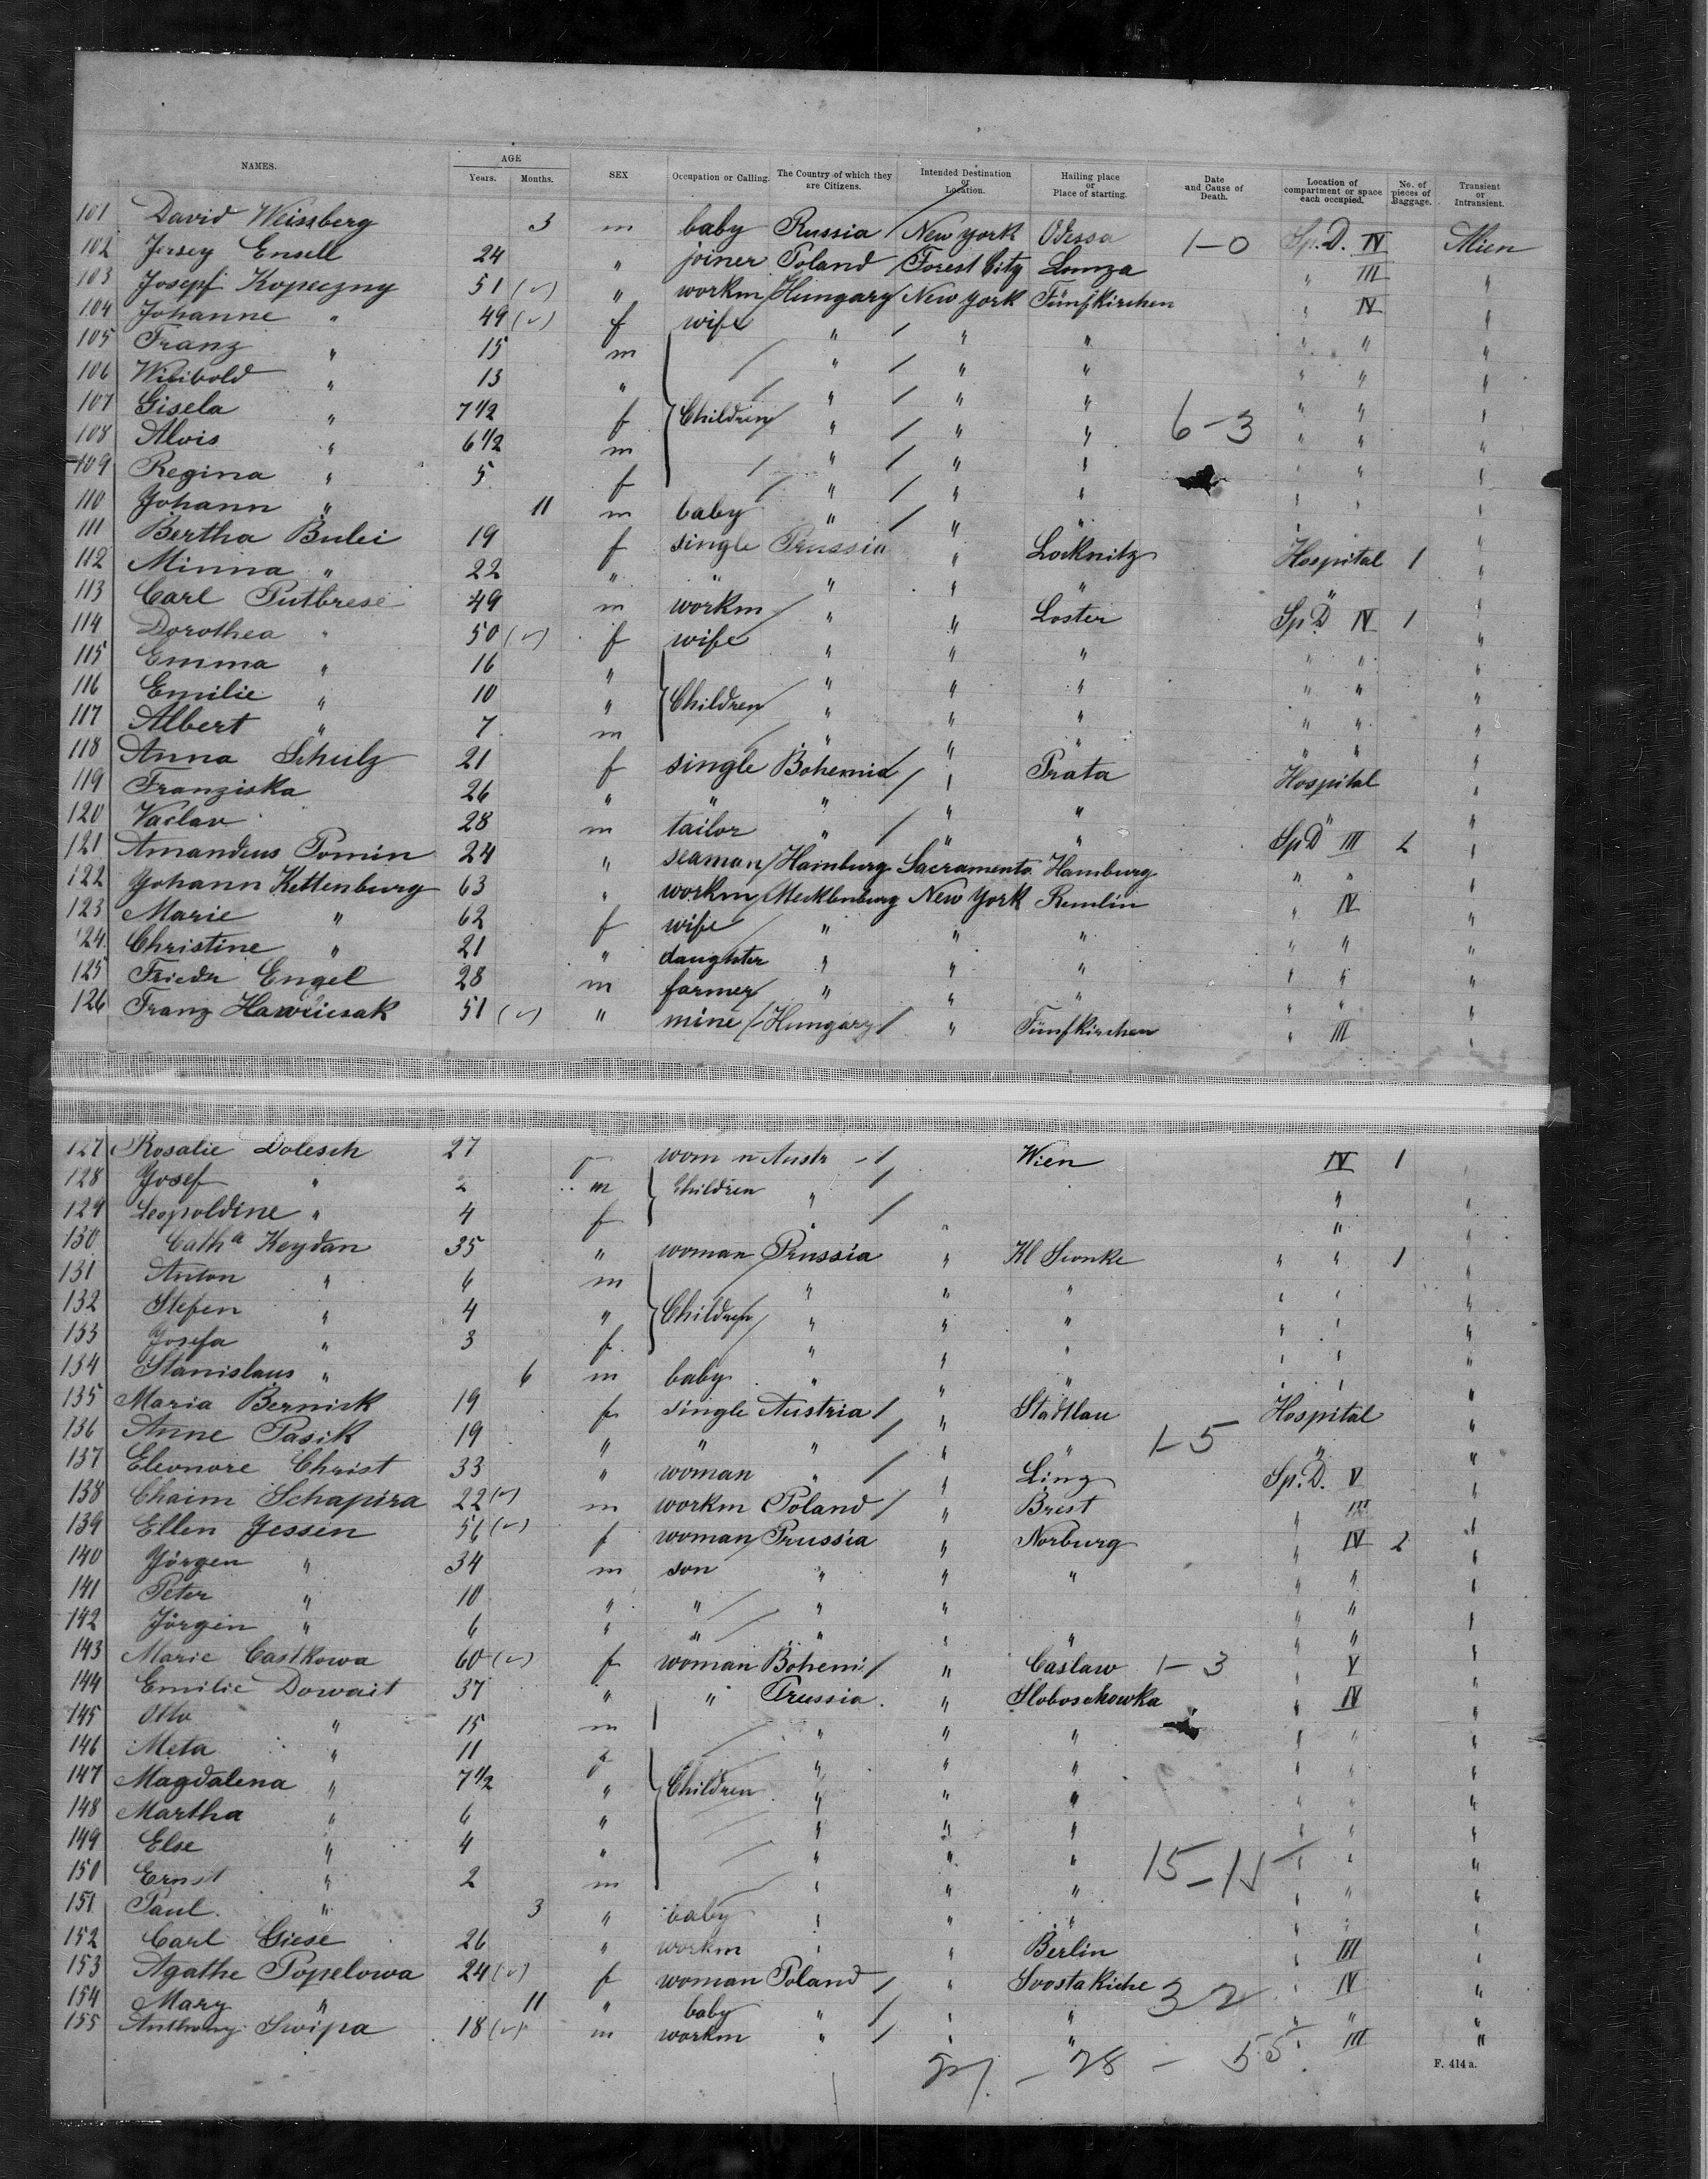 NAMES. AGE Years. Months. SEX Occupation or Calling. The Country of which they are Citizens. Intended Destination or Location. Hailing place or Place of starting. Date and Cause of Death. Location of compartment or space each occupied. No. of pieces of Baggage. Transient or Intransient.
101 David Weissberg 3 m baby Russia New York Odessa 1-0 Sp. D. IV Alien
102 Jersey Ensell 24 " joiner Poland Forest City Lomza " III "
103 Josepf Kopeczny 51 (v) " workm Hungary New York Fünfkirchen " IV "
104 Johanne " 49 (v) f wife " " " " " "
105 Franz " 15 m " " " " " "
106 Wilibold " 13 " " " " " " "
107 Gisela " 7 1/2 f Children " " " 6-3 " " "
108 Alois " 6 1/2 m " " " " " "
109 Regina " 5 f " " " " " "
110 Johann " 11 m baby " " " " " "
111 Bertha Bulei 19 f single Prussia " Locknitz Hospital 1 "
112 Minna " 22 " " " " " " "
113 Carl Putbrese 49 m workm " " Loster Sp. D IV 1 "
114 Dorothea " 50 (v) f wife " " " " " "
115 Emma " 16 " " " " " " "
116 Emilie " 10 " Children " " " " " "
117 Albert " 7 m " " " " " "
118 Anna Schulz 21 f single Bohemia " Prata Hospital "
119 Franziska 26 " " " " " " "
120 Vaclav 28 m tailor " " " Sp D III 2 "
121 Amandeus Pomin 24 " seaman Hamburg Sacramento Hamburg " " "
122 Johann Kettenburg 63 " workm Mecklenburg New York Remlin " IV "
123 Marie " 62 f wife " " " " " "
124 Christine " 21 " daughter " " " " " "
125 Friedr Engel 28 m farmer " " " " " "
126 Franz 51 (v) " mine Hungary " Fünfkirchen " III "
127 Rosalie Dolesch 27 f wom n Austr Wien IV 1 "
128 Josef " 2 m Children " " "
129 Leopoldine " 4 f " " " "
130 Cath a Keydan 35 " woman Prussia " Kl " " 1 "
131 Anton " 6 m " " " " " "
132 Stefen " 4 " Children " " " " " "
133 Josefa " 3 f " " " " " "
134 Stanislaus " 6 m baby " " " " " "
135 Maria Bernick 19 f single Austria " Stadtlau Hospital "
136 Anne Pasik 19 " " " " " 1-5 " "
137 Eleonore Christ 33 " woman " " Linz Sp. D. V "
138 Chaim Schapira 22 (v) m workm Poland " Brest " III "
139 Ellen Jessen 56 (v) f woman Prussia " Norburg " IV 2 "
140 Jörgen " 34 m son " " " " " "
141 Peter " 10 " " " " " " "
142 Jörgen " 6 " " " " " " " "
143 Marie Castkowa 60 (v) f woman Bohemi " Caslaw 1-3 " V "
144 Emilie Dowait 37 " " Prussia " Sloboschowka " IV "
145 Otto " 15 m " " " " " "
146 Meta " 11 f " " " " " "
147 Magdalena " 7 1/2 " Children " " " " " "
148 Martha " 6 " " " " " " "
149 Else " 4 " " " " " " "
150 Ernst " 2 m " " " " " "
151 Paul " 3 " baby " " " " " "
152 Carl Giese 26 " workm " " Berlin " III "
153 Agathe Popelowa 24 (v) f woman Poland " " IV "
154 Mary " 11 " baby " " " " " "
155 Anthony Swipa 18 (v) m workm " " " " III "
27 - 28 - 55
F. 414 a.